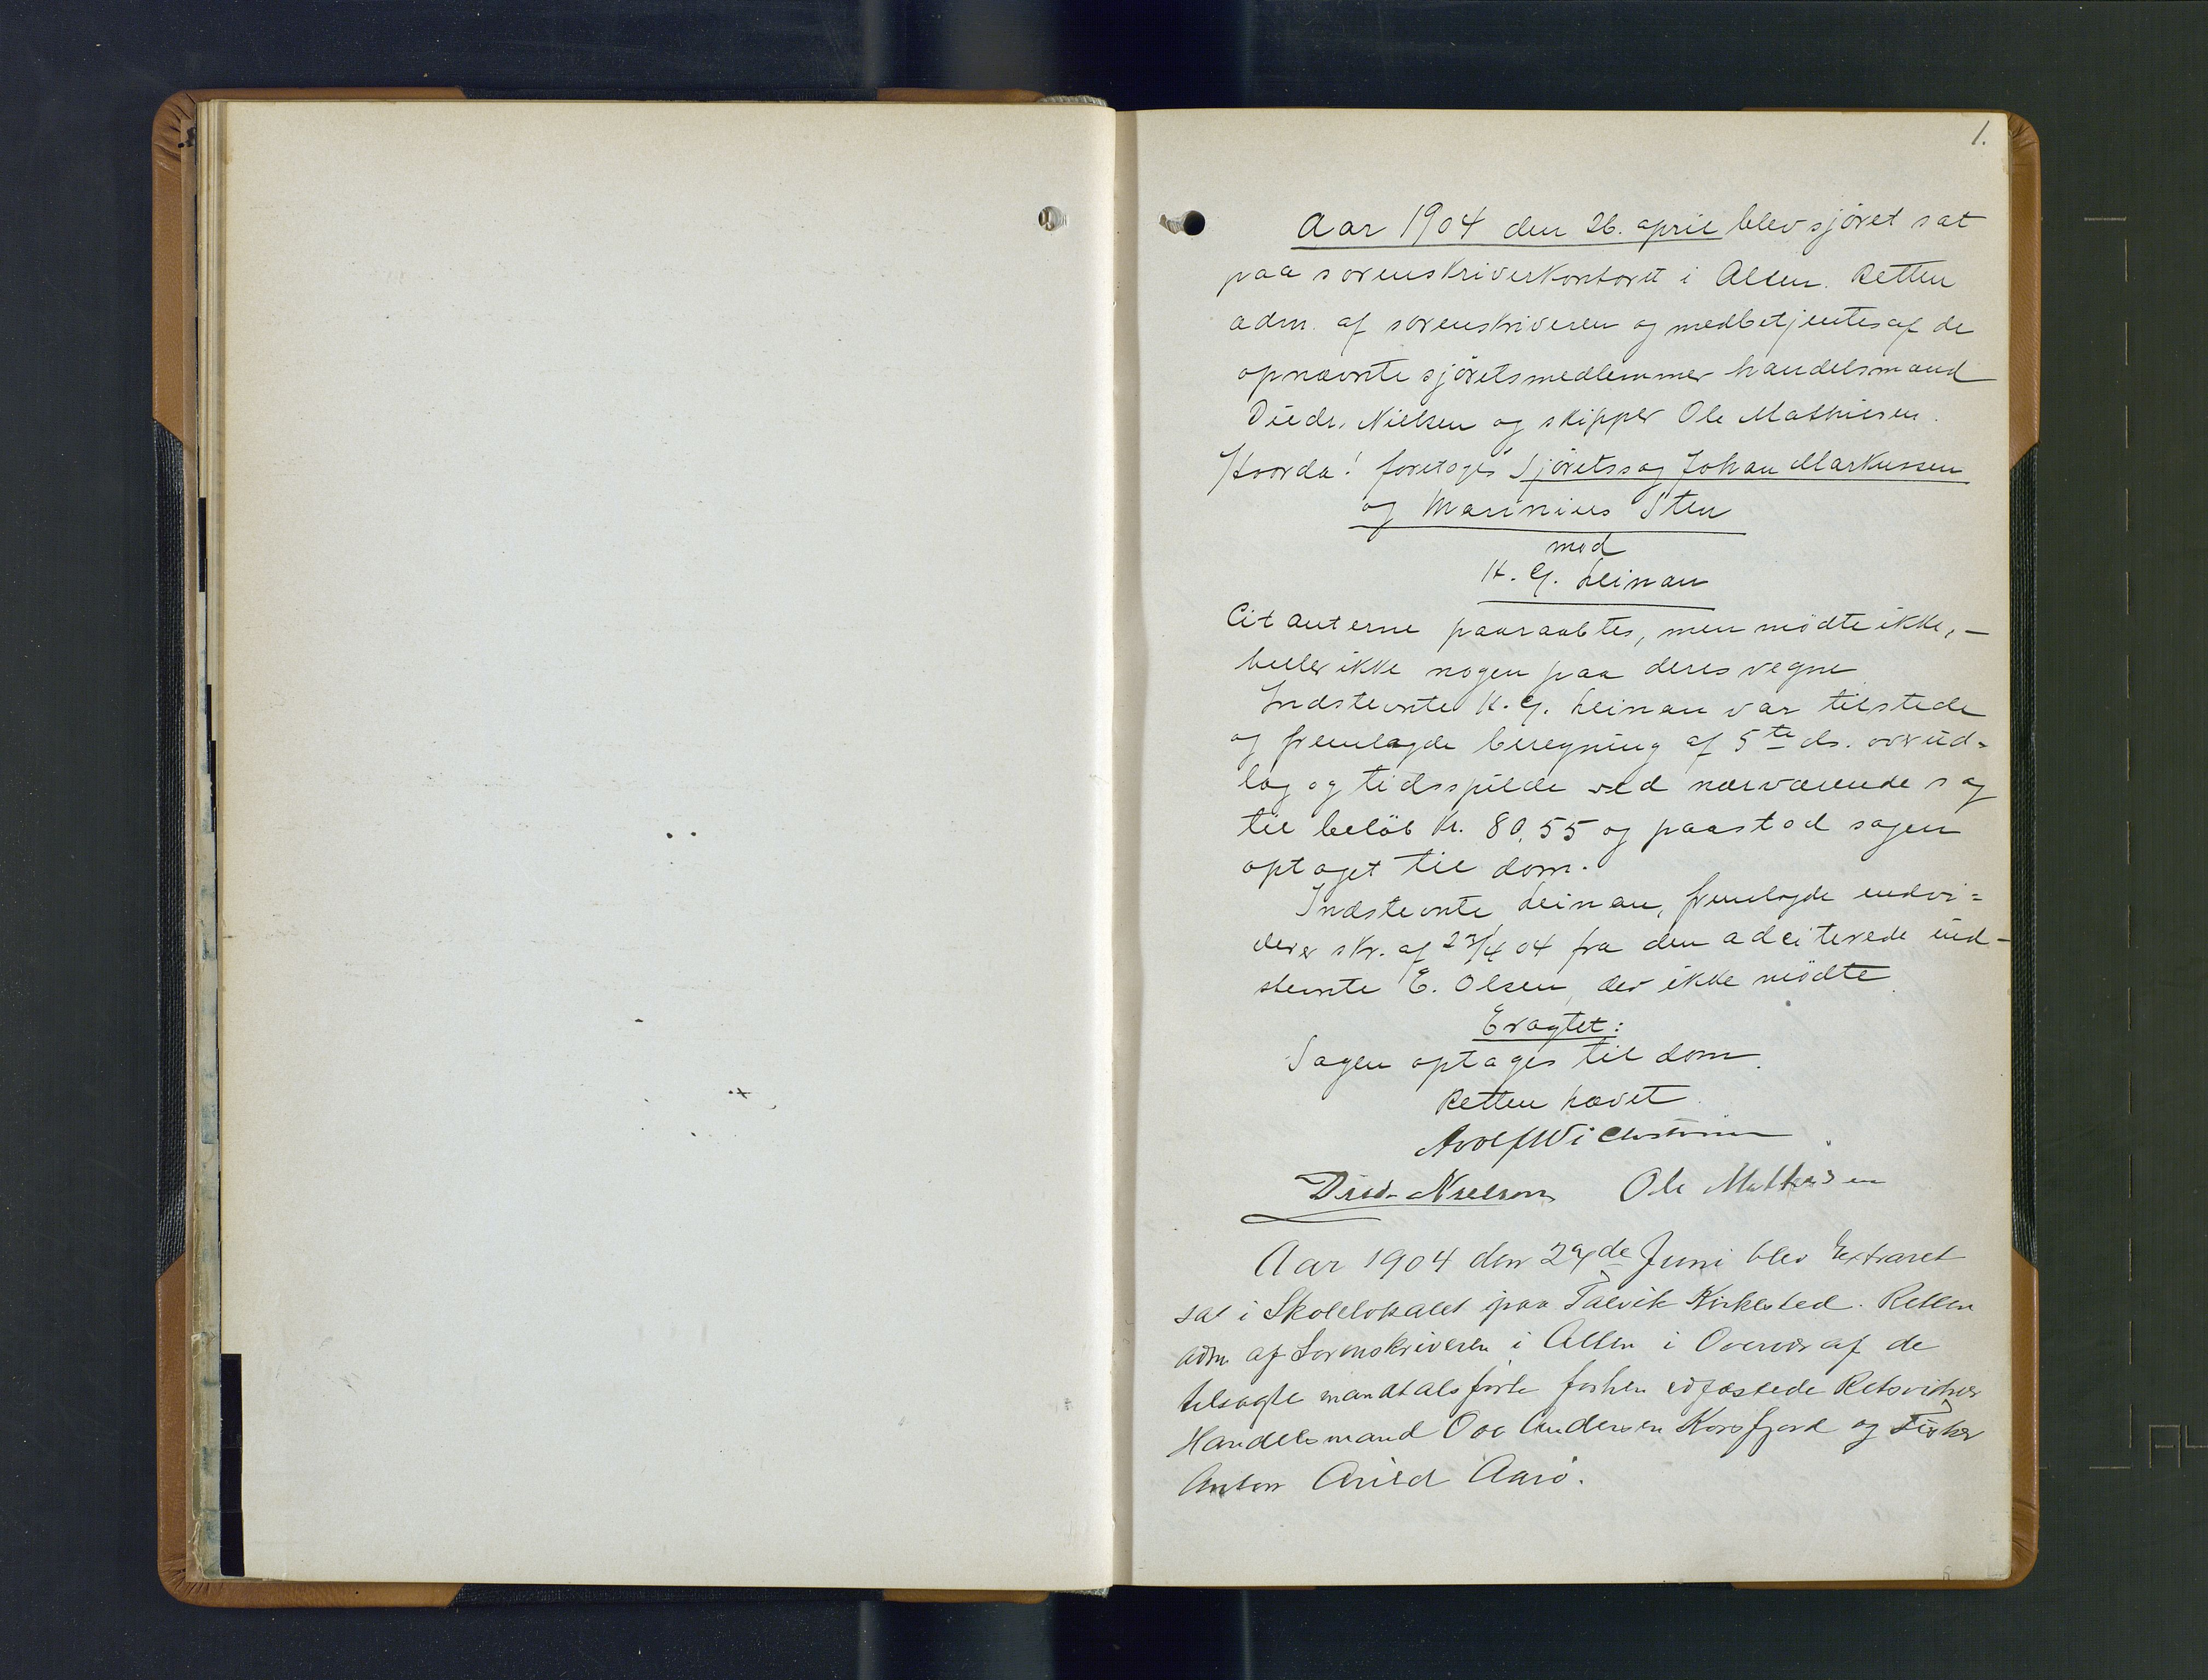 1.
Aar 1904 den 26. april blev sjøret sat
paa sorenskriverkontoret i Alten. Retten
adm. af sorenskriveren og medbetjentes af de
opnævnte sjøretsmedlemmer handelsmand
Diedr. Nielsen og skipper Ole Mathiesen.
Hvorda! foretoges Sjøretssag Johan Markussen
og Marinius Sten
mod
H. G. Leinan
Citanterne paaraabtes, men mødte ikke, –
heller ikke nogen paa deres vegne
Indstevnte H. G. Leinan var tilstede
og fremlagde beregning af 5te ds. over ud=
læg og tidsspilde ved nærværende sag
til beløb kr. 80,55 og paastod sagen
optaget til dom.
Indstevnte Leinan, fremlagde endvi=
dere skr. af 23/4 04 fra den adciterede ind-
stevnte E. Olsen, der ikke mødte.
Eragtet:
Sagen optages til dom.
Retten hævet.
Diedr. Nielsen Ole Mathisen
Aar 1904 den 29de Juni blev Extraret
sat i Skolelokalet paa Talvik Kirkested. Retten
adm. af Sorenskriveren i Alten i Overvær af de
tilsagte mandtalsførte forhen edfæstede Retsvidner
Handelsmand Ove Andersen Korsfjord og Fisker
Anton Arild Aarø.